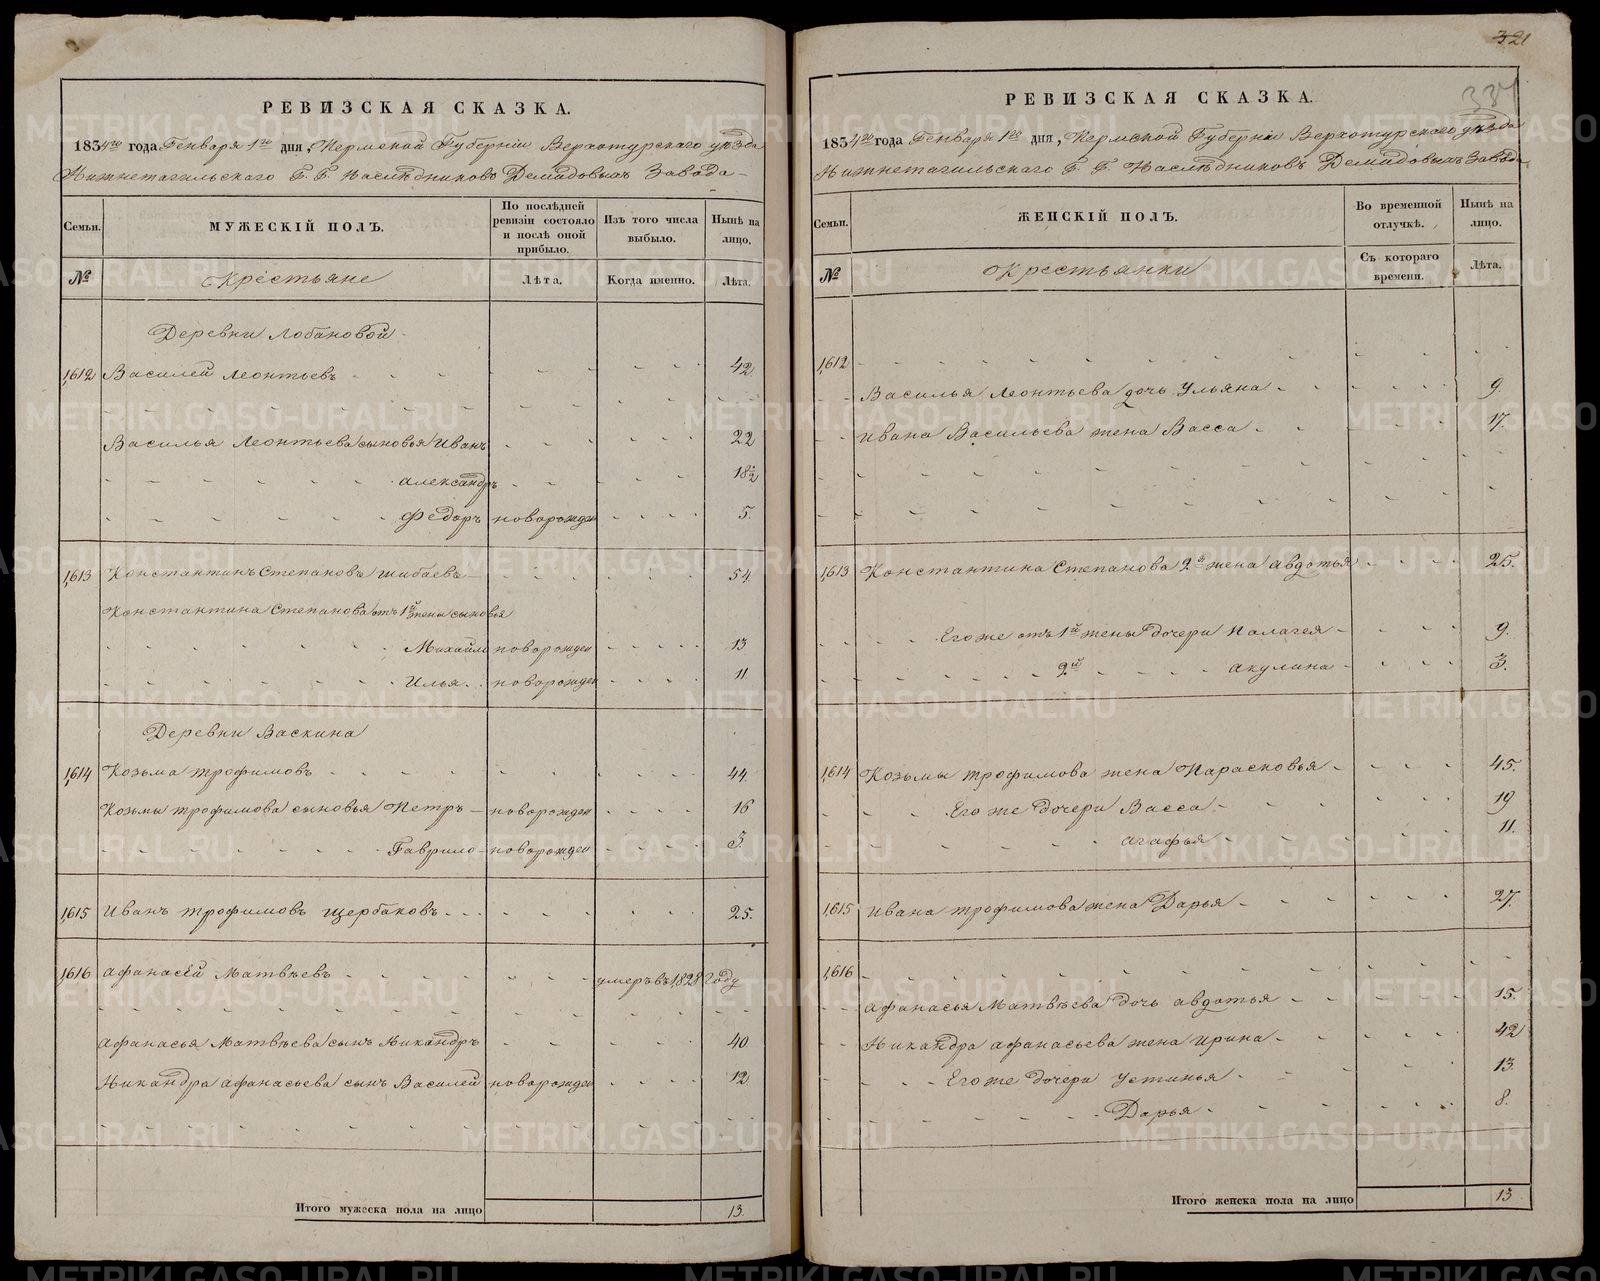 РЕВИЗСКАЯ СКАЗКА.
1834го года Генваря 1го дня, Пермской Губернiи Верхотурскаго уѣзда
Нижнетагильскаго Г. Г. Наслѣдниковъ Демидовыхъ Завода
Семьи.
МУЖЕСКIЙ ПОЛЪ.
По послѣдней ревизiи состояло и послѣ оной прибыло.
Изъ того числа выбыло.
Нынѣ на лицо.
№
Крестьяне
Лѣта.
Когда именно.
Лѣта.
Деревни Лобановой
1,612 Василей Леонтьевъ 42.
Василья Леонтьева сыновья Иванъ 22
Александръ 18½
Федоръ новорожден 5.
1,613 Константинъ Степановъ Шибаевъ 54.
Константина Степанова отъ 1й жены сыновья
Михайло новорожден 13
Илья новорожден 11
Деревни Васкина
1,614 Козьма Трофимовъ 44
Козьмы Трофимова сыновья Петръ новорожден 16
Гаврило новорожден 3.
1,615 Иванъ Трофимовъ Щербаковъ 25.
1,616 Афанасей Матвѣевъ умеръ въ 1,828 году
Афанасья Матвѣева сынъ Никандръ 40
Никандра Афанасьева сынъ Василей новорожден 12
Итого мужеска пола на лицо 13.
321
РЕВИЗСКАЯ СКАЗКА.
1834го года Генваря 1го дня, Пермской Губернiи Верхотурскаго уѣзда
Нижнетагильскаго Г. Г. Наслѣдниковъ Демидовыхъ Завода
Семьи.
ЖЕНСКIЙ ПОЛЪ.
Во временной отлучкѣ.
Нынѣ на лицо.
№
Крестьянки
Съ котораго времени.
Лѣта.
1,612
Василья Леонтьева дочь Ульяна 9.
Ивана Васильева жена Васса 17.
1,613 Константина Степанова 2я жена Авдотья 25.
Его же отъ 1й жены дочери Палагея 9.
2й Акулина 3.
1,614 Козьмы Трофимова жена Парасковья 45.
Его же дочери Васса 19
Агафья 11.
1,615 Ивана Трофимова жена Дарья 27.
1,616
Афанасья Матвѣева дочь Авдотья 15.
Никандра Афанасьева жена Ирина 42
Его же дочери Устинья 13.
Дарья 8.
Итого женска пола на лицо 13
METRIKI.GASO-URAL.RU